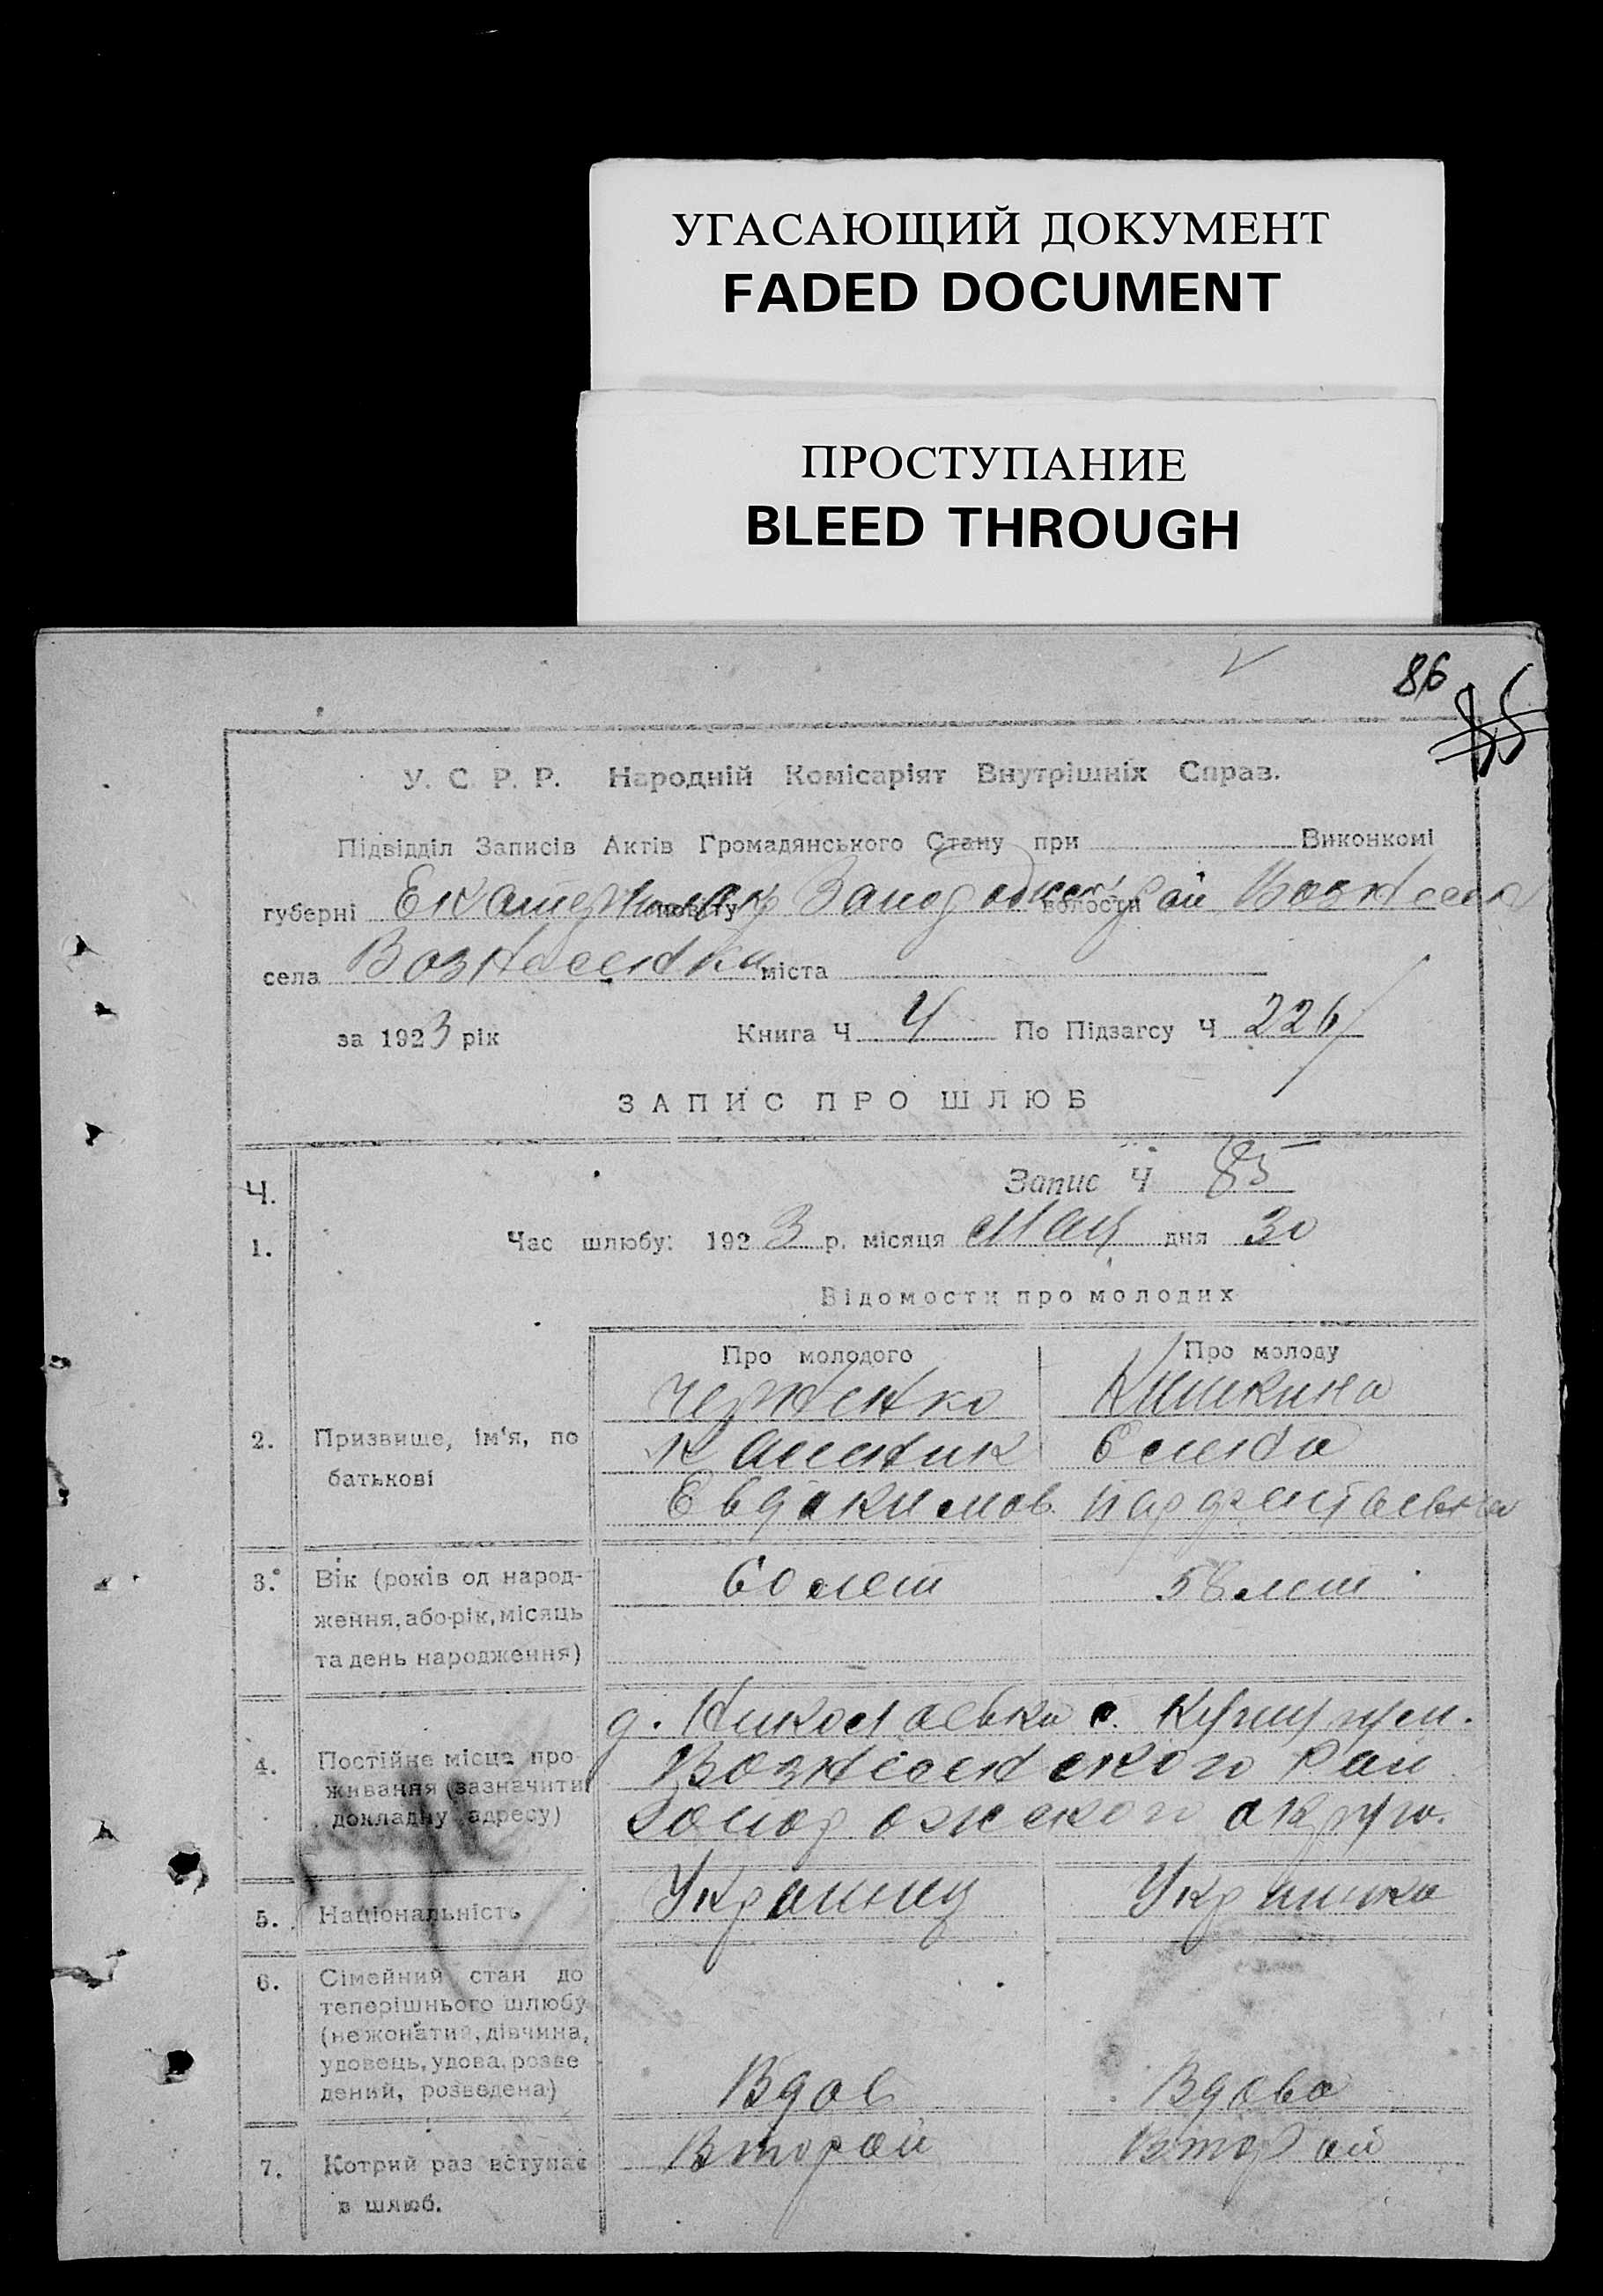 УГАСАЮЩИЙ ДОКУМЕНТ
FADED DOCUMENT
ПРОСТУПАНИЕ
BLEED THROUGH
86
85
У. С. Р. Р. Народній Комісаріят Внутрішніх Справ.
Підвідділ Записів Актів Громадянського Стану при Виконкомі
губерні Екатерин повіту волости
села Вознесенка міста
за 1923 рік Книга Ч 4 По Підзагсу Ч 226
ЗАПИС ПРО ШЛЮБ
Ч. Запис Ч 85
1. Час шлюбу: 1923 р. місяця Мая дня 30
Відомости про молодих
Про молодого Про молоду
Черненко Кишкина
2. Призвище, ім'я, по батькові Каленик Елена
Евдокимов.
3. Вік (років од народ- 60 лет 58 лет
ження, або рік, місяць
та день народження)
д. Николаевка с.
4. Постійне місце про- Вознесенского Рай
живання (зазначити
докладну адресу) Запорожского округа.
5. Національність Украинец Украинка
6. Сімейний стан до
теперішнього шлюбу
(нежонатий, дівчина,
удовець, удова, розве
дений, розведена) Вдов Вдова
7. Котрий раз вступає Второй Второй
в шлюб.